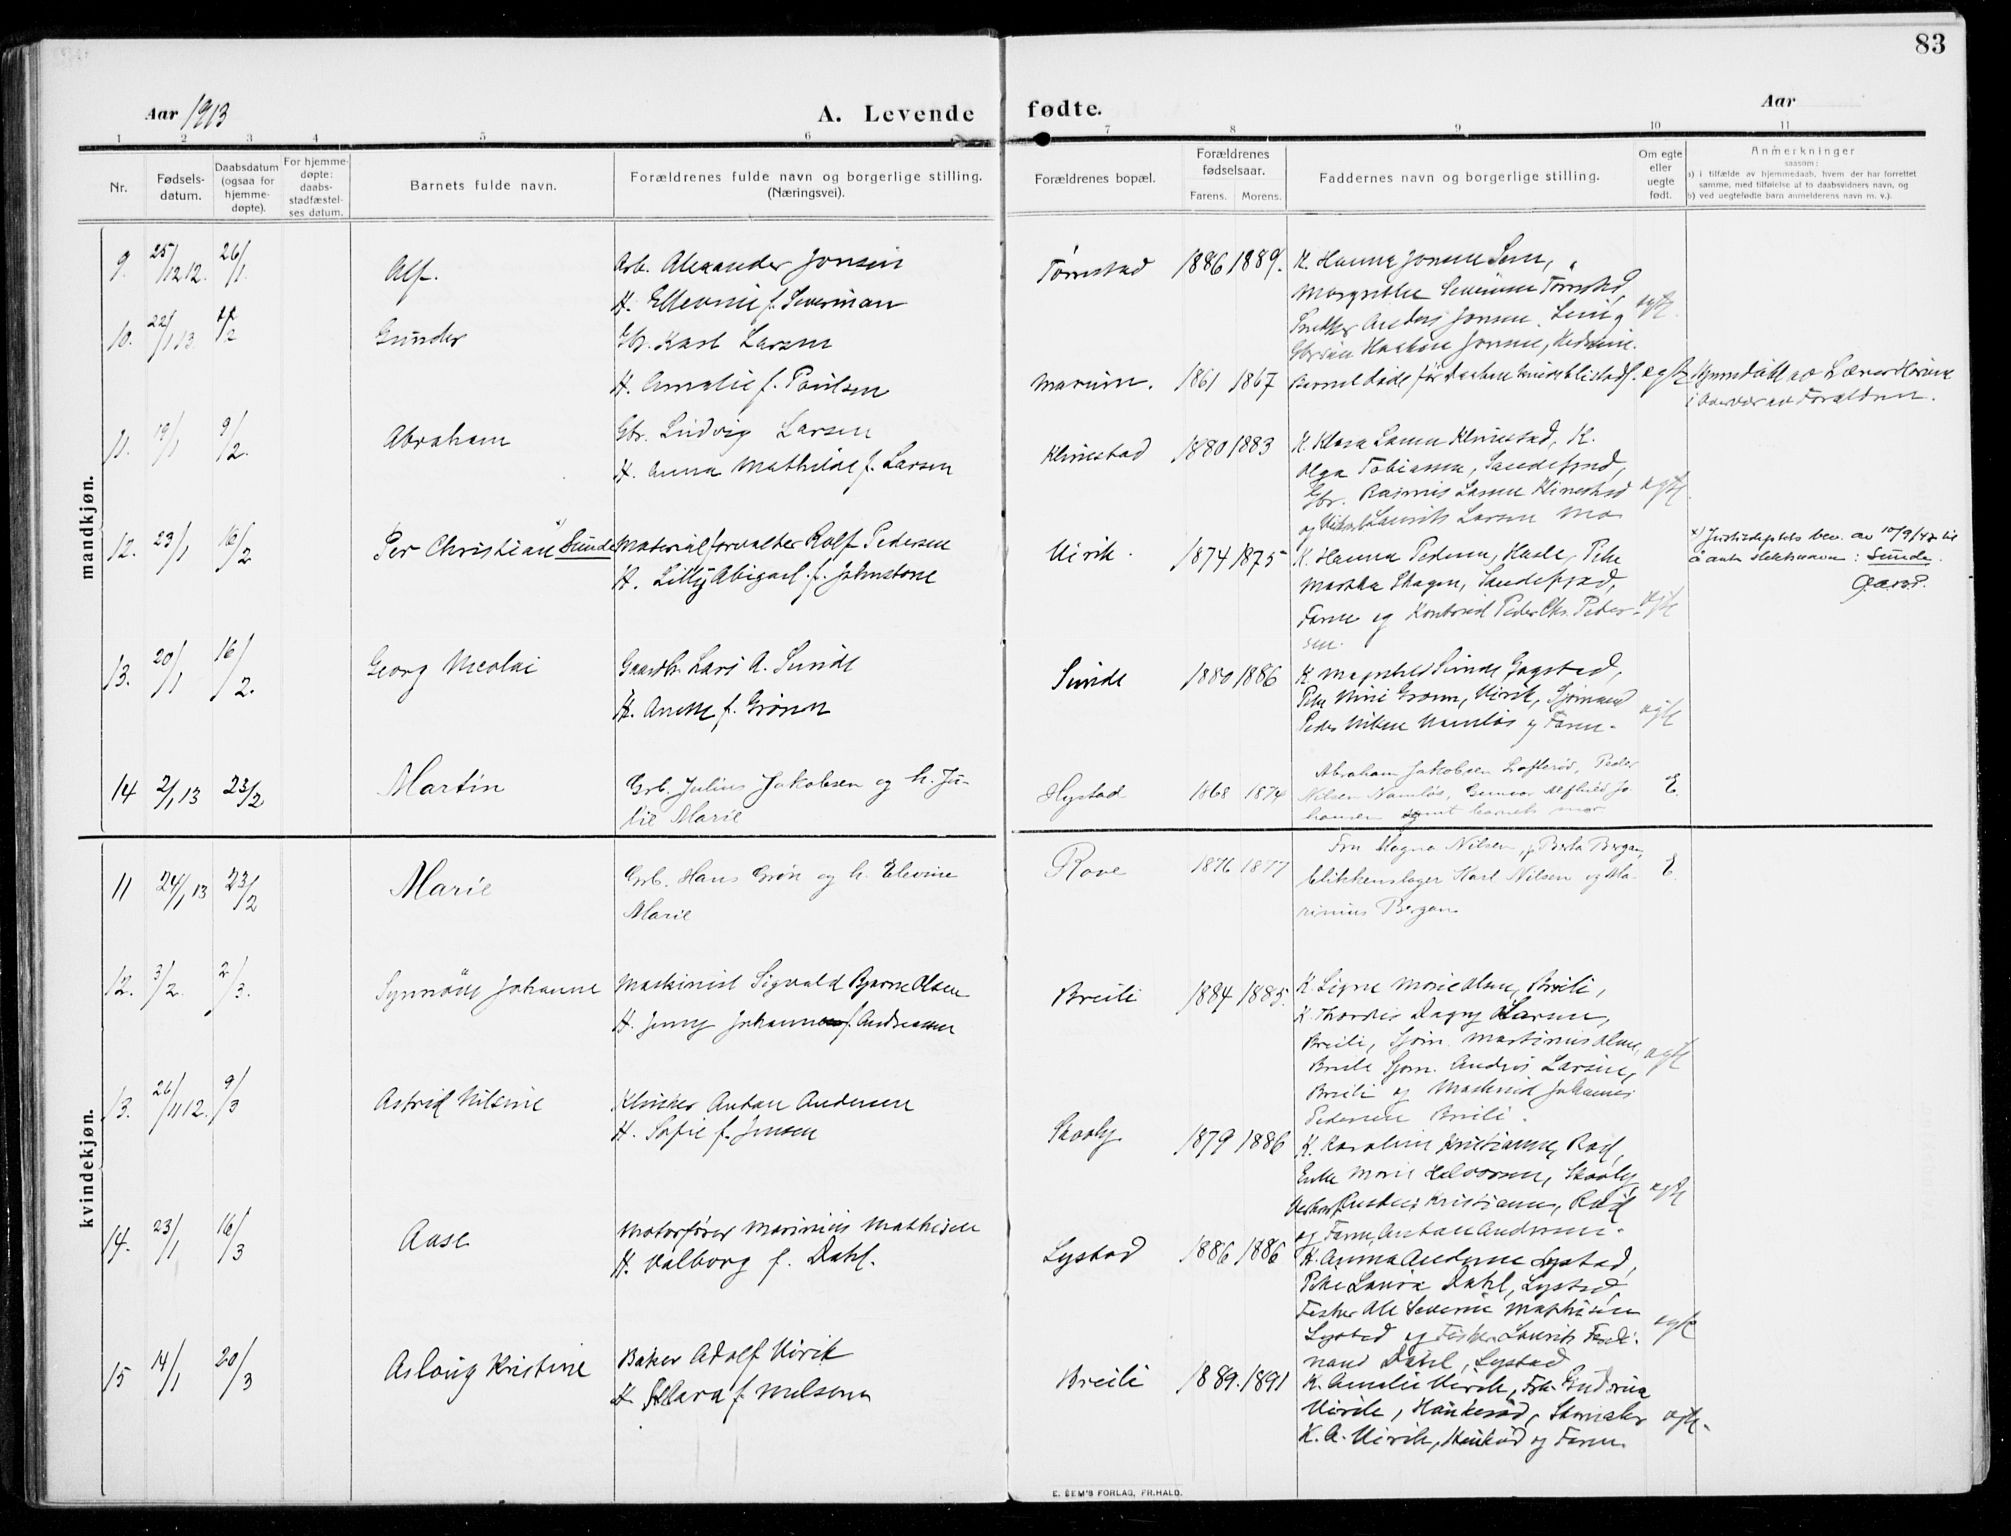 83
Aar 1913
A. Levende fødte.
Aar
1 2 3 4 5 6 7 8 9 10 11
Nr.
Fødsels-
datum.
Daabsdatum
(ogsaa for
hjemme-
døpte).
For hjemme-
døpte:
daabs-
stadfæstel-
ses datum.
Barnets fulde navn.
Forældrenes fulde navn og borgerlige stilling.
(Næringsvei).
Forældrenes bopæl.
Forældrenes
fødselsaar.
Farens. Morens.
Faddernes navn og borgerlige stilling.
Om egte
eller
uegte
født.
Anmerkninger
saasom:
a) i tilfælde av hjemmedaab, hvem der har forrettet
samme, med tilføielse af to daabsvidners navn, og
b) ved uegtefødte barn anmelderens navn m. v.).
mandkjøn.
9. 25/12 12. 26/1. Alf.
Arb. Alexander Jonsen
H. Ellevine f. Severinsen
1886 1889.
K. Hanna Jonsen Sem,
egte
10. 22/1 13 Gunder
Gbr. Karl Larsen
H. Amalie f. Paulsen
1861 1867
egte
11. 19/1 9/2. Abraham
Gbr. Ludvig Larsen
H. Anna Mathilde f. Larsen
Klinestad 1880 1883
K. Klara Larsen Klinestad, K.
Olga Tobiassen, Sandefjord,
Gbr. Rasmus Larsen Klinestad
og Laurits Larsen
egte
12. 23/1 16/2 Per Christian Sunde
Materialforvalter Rolf Pedersen
H. Lilly Abigael f. Johnstone
Virik. 1874 1875
K. Hanna Pedersen, Hasle, Pike
Martha Skagen, Sandefjord,
Faren og Kontorist Peder Chr. Peder-
sen.
egte
x) Justisdeptets bev. av 10/9/47 til
å anta slektsnavn: Sunde.
13. 20/1 16/2. Georg Nicolai
Gaardbr. Lars A. Sunde
H. Anette f. Grönn
Sunde 1880 1886
K. Magnhild Sunde Gogstad,
Pike Grönn, Virik, Sjömand
Peder Nilsen Namløs og Faren.
egte
14 2/1 13 23/2 Martin
Grb. Julius Jakobsen og h. Ju-
lie Marie
Hystad 1868 1874
Abraham Jakobsen Lofterød, Peder
Nilsen Namløs, Alfhild Jo-
hansen samt barnets mor
E.
kvindekjøn.
11 24/1 13 23/2 Marie
Grb. Hans Grön og h. Elevine
Marie
Rove 1876 1877
Fru Magna Nilsen, p. Berta Bergan,
blikkenslager Karl Nilsen og Ma-
rinius Bergan
E.
12. 3/2. 2/3. Synnöve Johanne
Maskinist Sigvald Bjarne Olsen
H. Jenny Johanne f. Andreassen
Breili 1884 1885.
K. Signe Marie Olsen, Breili,
K. Thordis Dagny Larsen,
Breili, Sjöm. Martinius Olsen,
Breili Sjöm. Anders Larsen,
Breili og Maskinist Johannes
Pedersen Breili.
egte
13. 26/11 12. 9/3 Astrid Nilsine
Klinker Anton Andersen
H. Sofie f. Jensen
Skovly 1879 1886
K. Karoline Kristiansen, Rød,
Enke Marie Halvorsen, Skovly,
Kristiansen, Rød
og Faren, Anton Andersen.
egte
14. 23/1 16/3 Aase
Motorfører Marinius Mathisen
H. Valborg f. Dahl.
Lystad 1886 1886
K. Anna Andersen Lystad,
Pike Laura Dahl, Lystad,
Fisker Ole Severin Mathisen
Lystad og Fisker Laurits Ferdi-
nand Dahl, Lystad
egte
15 14/1 20/3 Aslaug Kristine
Baker Adolf Virik
H. Klara f. Nilsen
Breili 1889. 1891
K. Amalie Virik,
Virik, Haukerød, Skomaker
K. A. Virik, Haukerød og Faren
egte.
E. SEM'S FORLAG, FR.HALD.